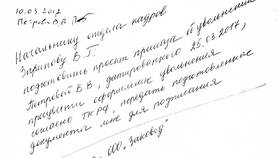 10.03.2017
Петров В.В.
Начальнику отдела кадров
Зариповой В.Т.
подготовить проект приказа об увольнении
Петровой В.В., датированного 25.03.2017,
процедуру оформления увольнения
согласно ТК РФ, передать подготовленные
документы мне для подписания
ООО "Заквод"